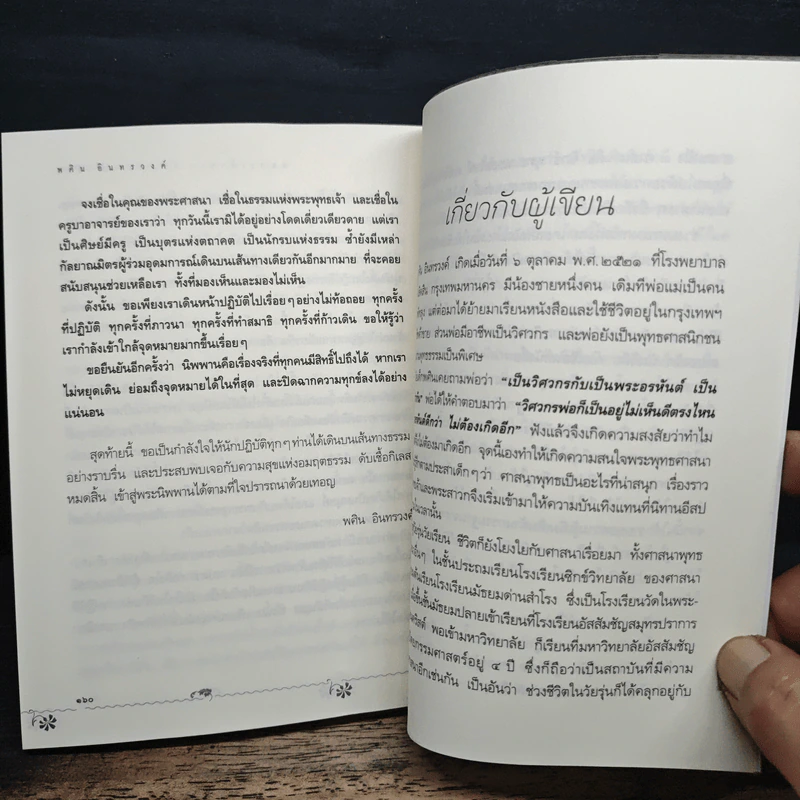 พศิน อินทรวงค์
จงเชื่อในคุณของพระศาสนา เชื่อในธรรมแห่งพระพุทธเจ้า และเชื่อใน
ครูบาอาจารย์ของเราว่า ทุกวันนี้เรามิได้อยู่อย่างโดดเดี่ยวเดียวดาย แต่เรา
เป็นศิษย์มีครู เป็นบุตรแห่งตถาคต เป็นนักรบแห่งธรรม ซ้ำยังมีเหล่า
กัลยาณมิตรผู้ร่วมอุดมการณ์เดินบนเส้นทางเดียวกันอีกมากมาย ที่จะคอย
สนับสนุนช่วยเหลือเรา ทั้งที่มองเห็นและมองไม่เห็น
ดังนั้น ขอเพียงเราเดินหน้าปฏิบัติไปเรื่อยๆอย่างไม่ท้อถอย ทุกครั้ง
ที่ปฏิบัติ ทุกครั้งที่ภาวนา ทุกครั้งที่ทำสมาธิ ทุกครั้งที่ก้าวเดิน ขอให้รู้ว่า
เรากำลังเข้าใกล้จุดหมายมากขึ้นเรื่อยๆ
ขอยืนยันอีกครั้งว่า นิพพานคือเรื่องจริงที่ทุกคนมีสิทธิ์ไปถึงได้ หากเรา
ไม่หยุดเดิน ย่อมถึงจุดหมายได้ในที่สุด และปิดฉากความทุกข์ลงได้อย่าง
แน่นอน
สุดท้ายนี้ ขอเป็นกำลังใจให้นักปฏิบัติทุกๆท่านได้เดินบนเส้นทางธรรม
อย่างราบรื่น และประสบพบเจอกับความสุขแห่งอมฤตธรรม ดับเชื้อกิเลส
หมดสิ้น เข้าสู่พระนิพพานได้ตามที่ใจปรารถนาด้วยเทอญ
พศิน อินทรวงค์
๑๖๐
เกี่ยวกับผู้เขียน
อินทรวงค์ เกิดเมื่อวันที่ ๖ ตุลาคม พ.ศ.๒๕๒๑ ที่โรงพยาบาล
กรุงเทพมหานคร มีน้องชายหนึ่งคน เดิมทีพ่อแม่เป็นคน
แต่ต่อมาได้ย้ายมาเรียนหนังสือและใช้ชีวิตอยู่ในกรุงเทพฯ
ส่วนพ่อมีอาชีพเป็นวิศวกร และพ่อยังเป็นพุทธศาสนิกชน
เป็นพิเศษ
พศินเคยถามพ่อว่า "เป็นวิศวกรกับเป็นพระอรหันต์ เป็น
พ่อได้ให้คำตอบมาว่า "วิศวกรพ่อก็เป็นอยู่ไม่เห็นดีตรงไหน
ดีกว่า ไม่ต้องเกิดอีก" ฟังแล้วจึงเกิดความสงสัยว่าทำไม
ต้องมาเกิดอีก จุดนี้เองทำให้เกิดความสนใจพระพุทธศาสนา
ตามประสาเด็กๆว่า ศาสนาพุทธเป็นอะไรที่น่าสนุก เรื่องราว
และพระสาวกจึงเริ่มเข้ามาให้ความบันเทิงแทนที่นิทานอีสป
เวลานั้น
วัยเรียน ชีวิตก็ยังโยงใยกับศาสนาเรื่อยมา ทั้งศาสนาพุทธ
อื่นๆ ในชั้นประถมเรียนโรงเรียนซิกข์วิทยาลัย ของศาสนา
เรียนโรงเรียนมัธยมด่านสำโรง ซึ่งเป็นโรงเรียนวัดในพระ-
ชั้นมัธยมปลายเข้าเรียนที่โรงเรียนอัสสัมชัญสมุทรปราการ
พอเข้ามหาวิทยาลัย ก็เรียนที่มหาวิทยาลัยอัสสัมชัญ
กรรมศาสตร์อยู่ ๔ ปี ซึ่งก็ถือว่าเป็นสถาบันที่มีความ
อีกเช่นกัน เป็นอันว่า ช่วงชีวิตในวัยรุ่นก็ได้คลุกอยู่กับ